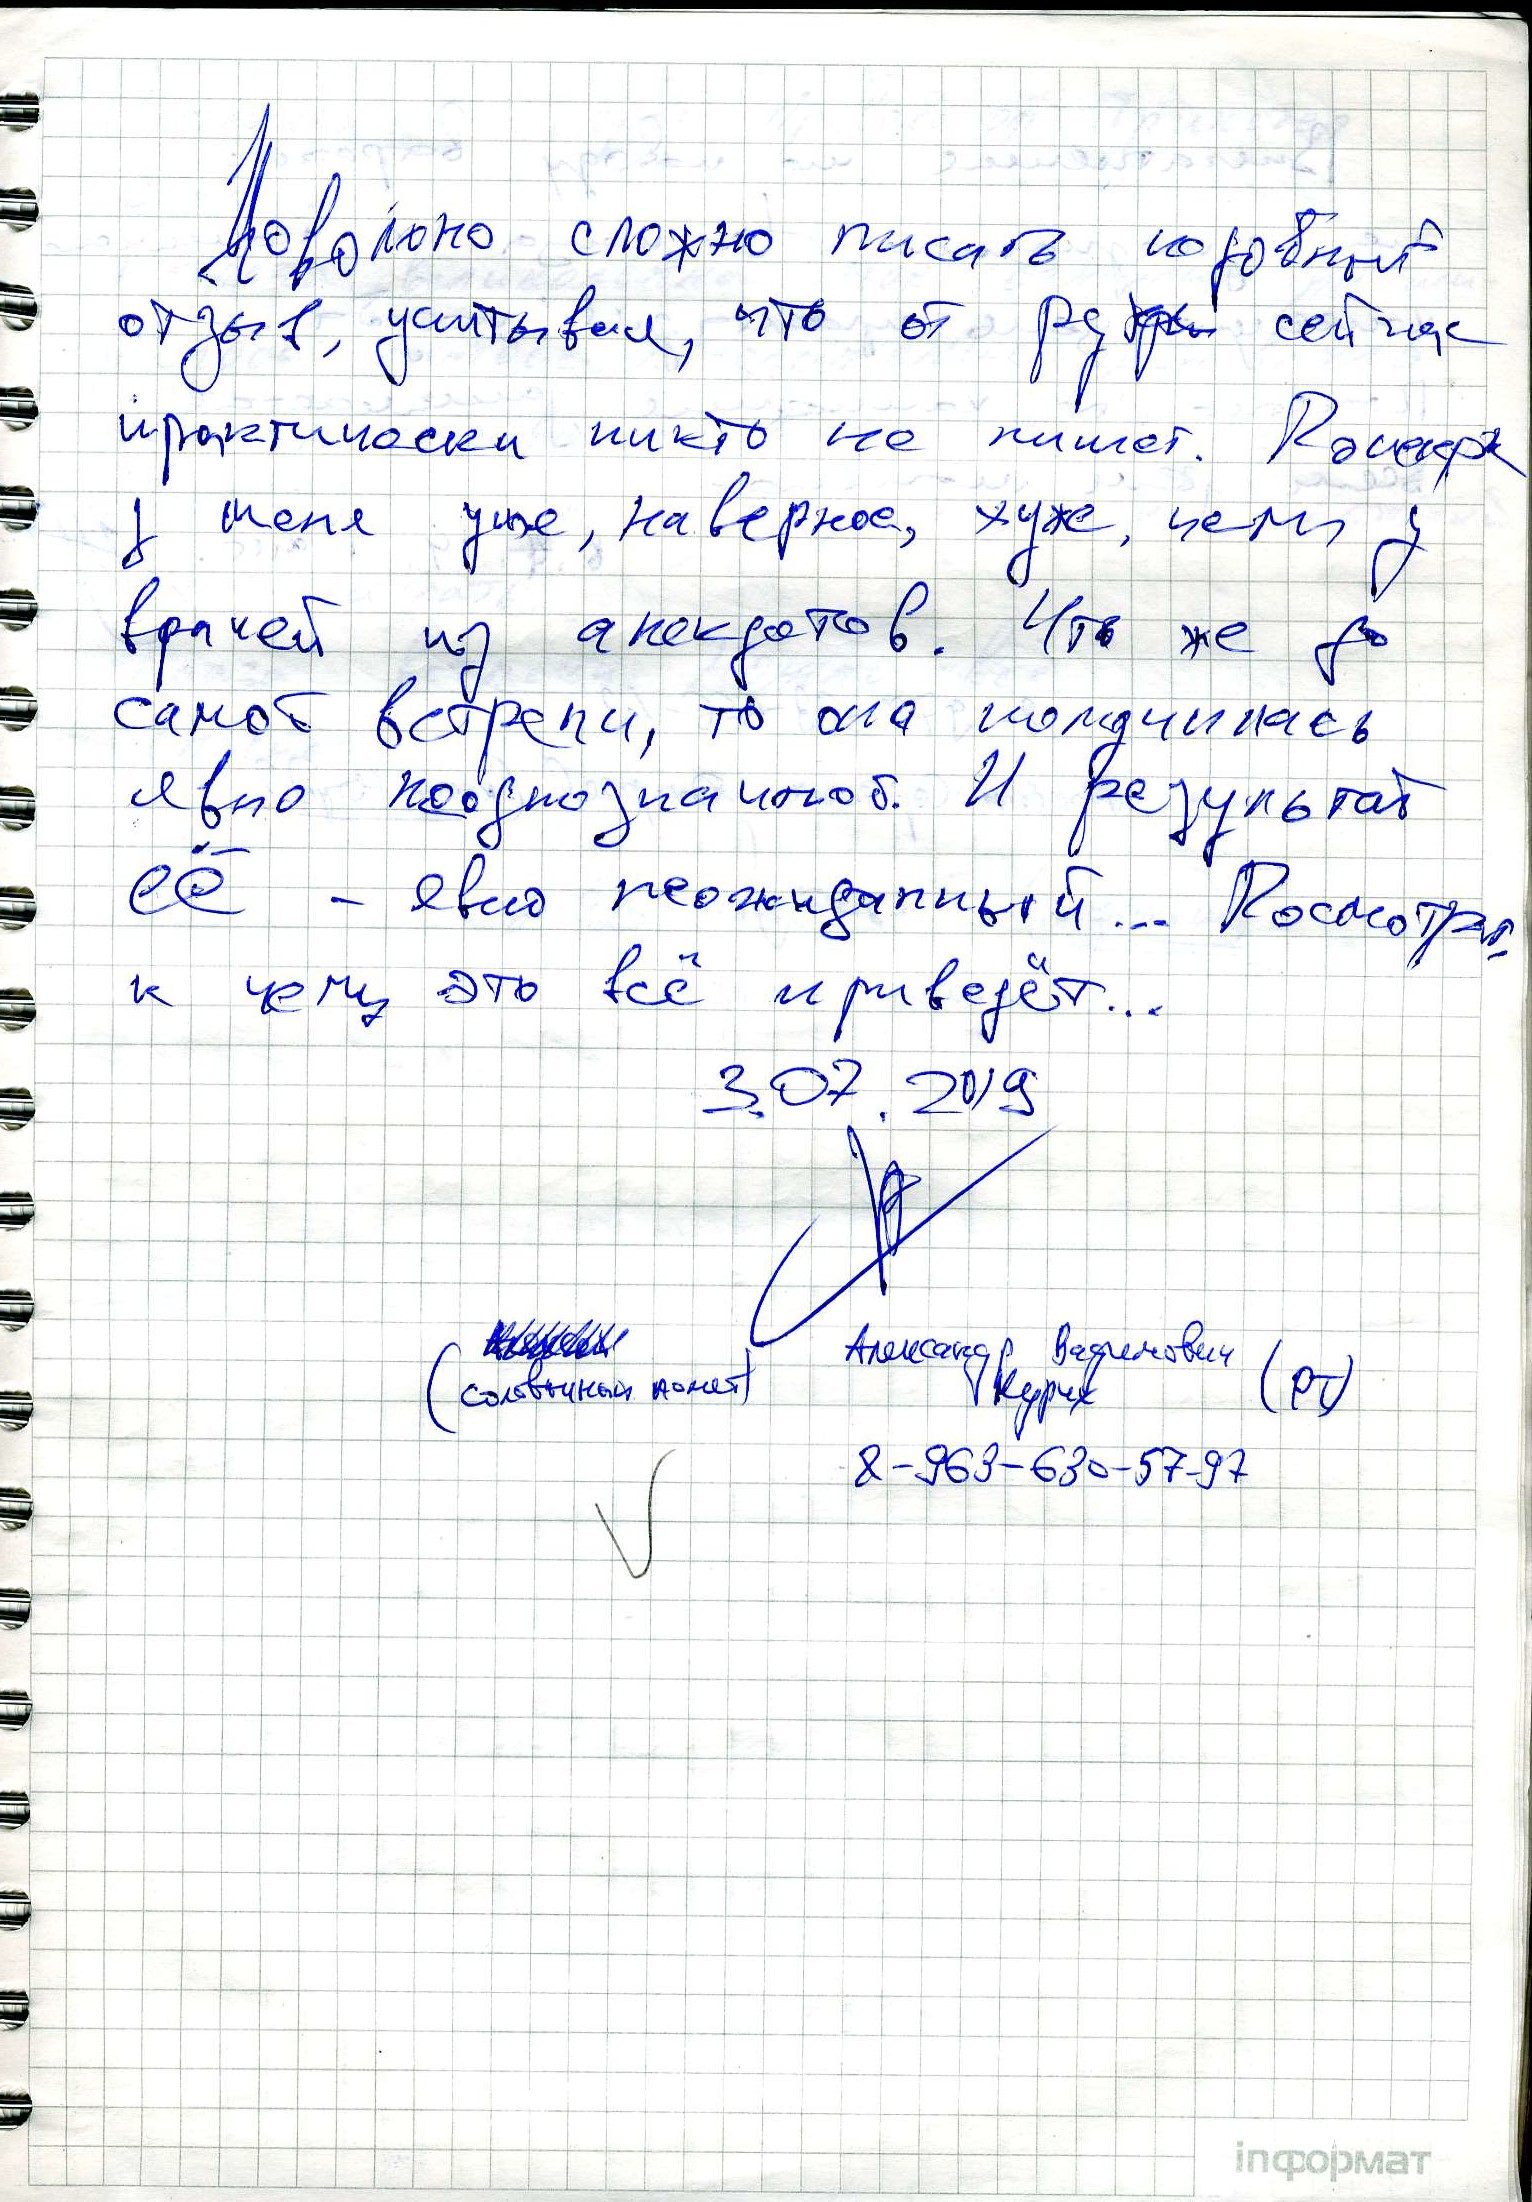 Довольно сложно писать подобный
отзыв, учитывая, что от руки сейчас
практически никто не пишет. Почерк
у меня уже, наверное, хуже, чем у
врачей из анекдотов. Что же до
самой встречи, то она получилась
явно неоднозначной. И результат
её – явно неожиданный... Посмотрим,
к чему это всё приведёт...
3.07.2019
Александр Вадимович
(РТ)
8-963-630-57-97
inформат